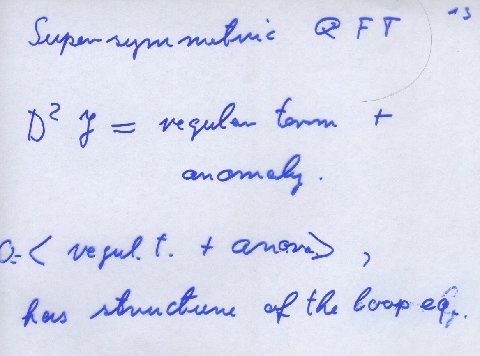 13
Supersymmetric QFT
D² J = regular term +
anomaly.
0=< regul. t. + anom.> ,
has structure of the loop eq.